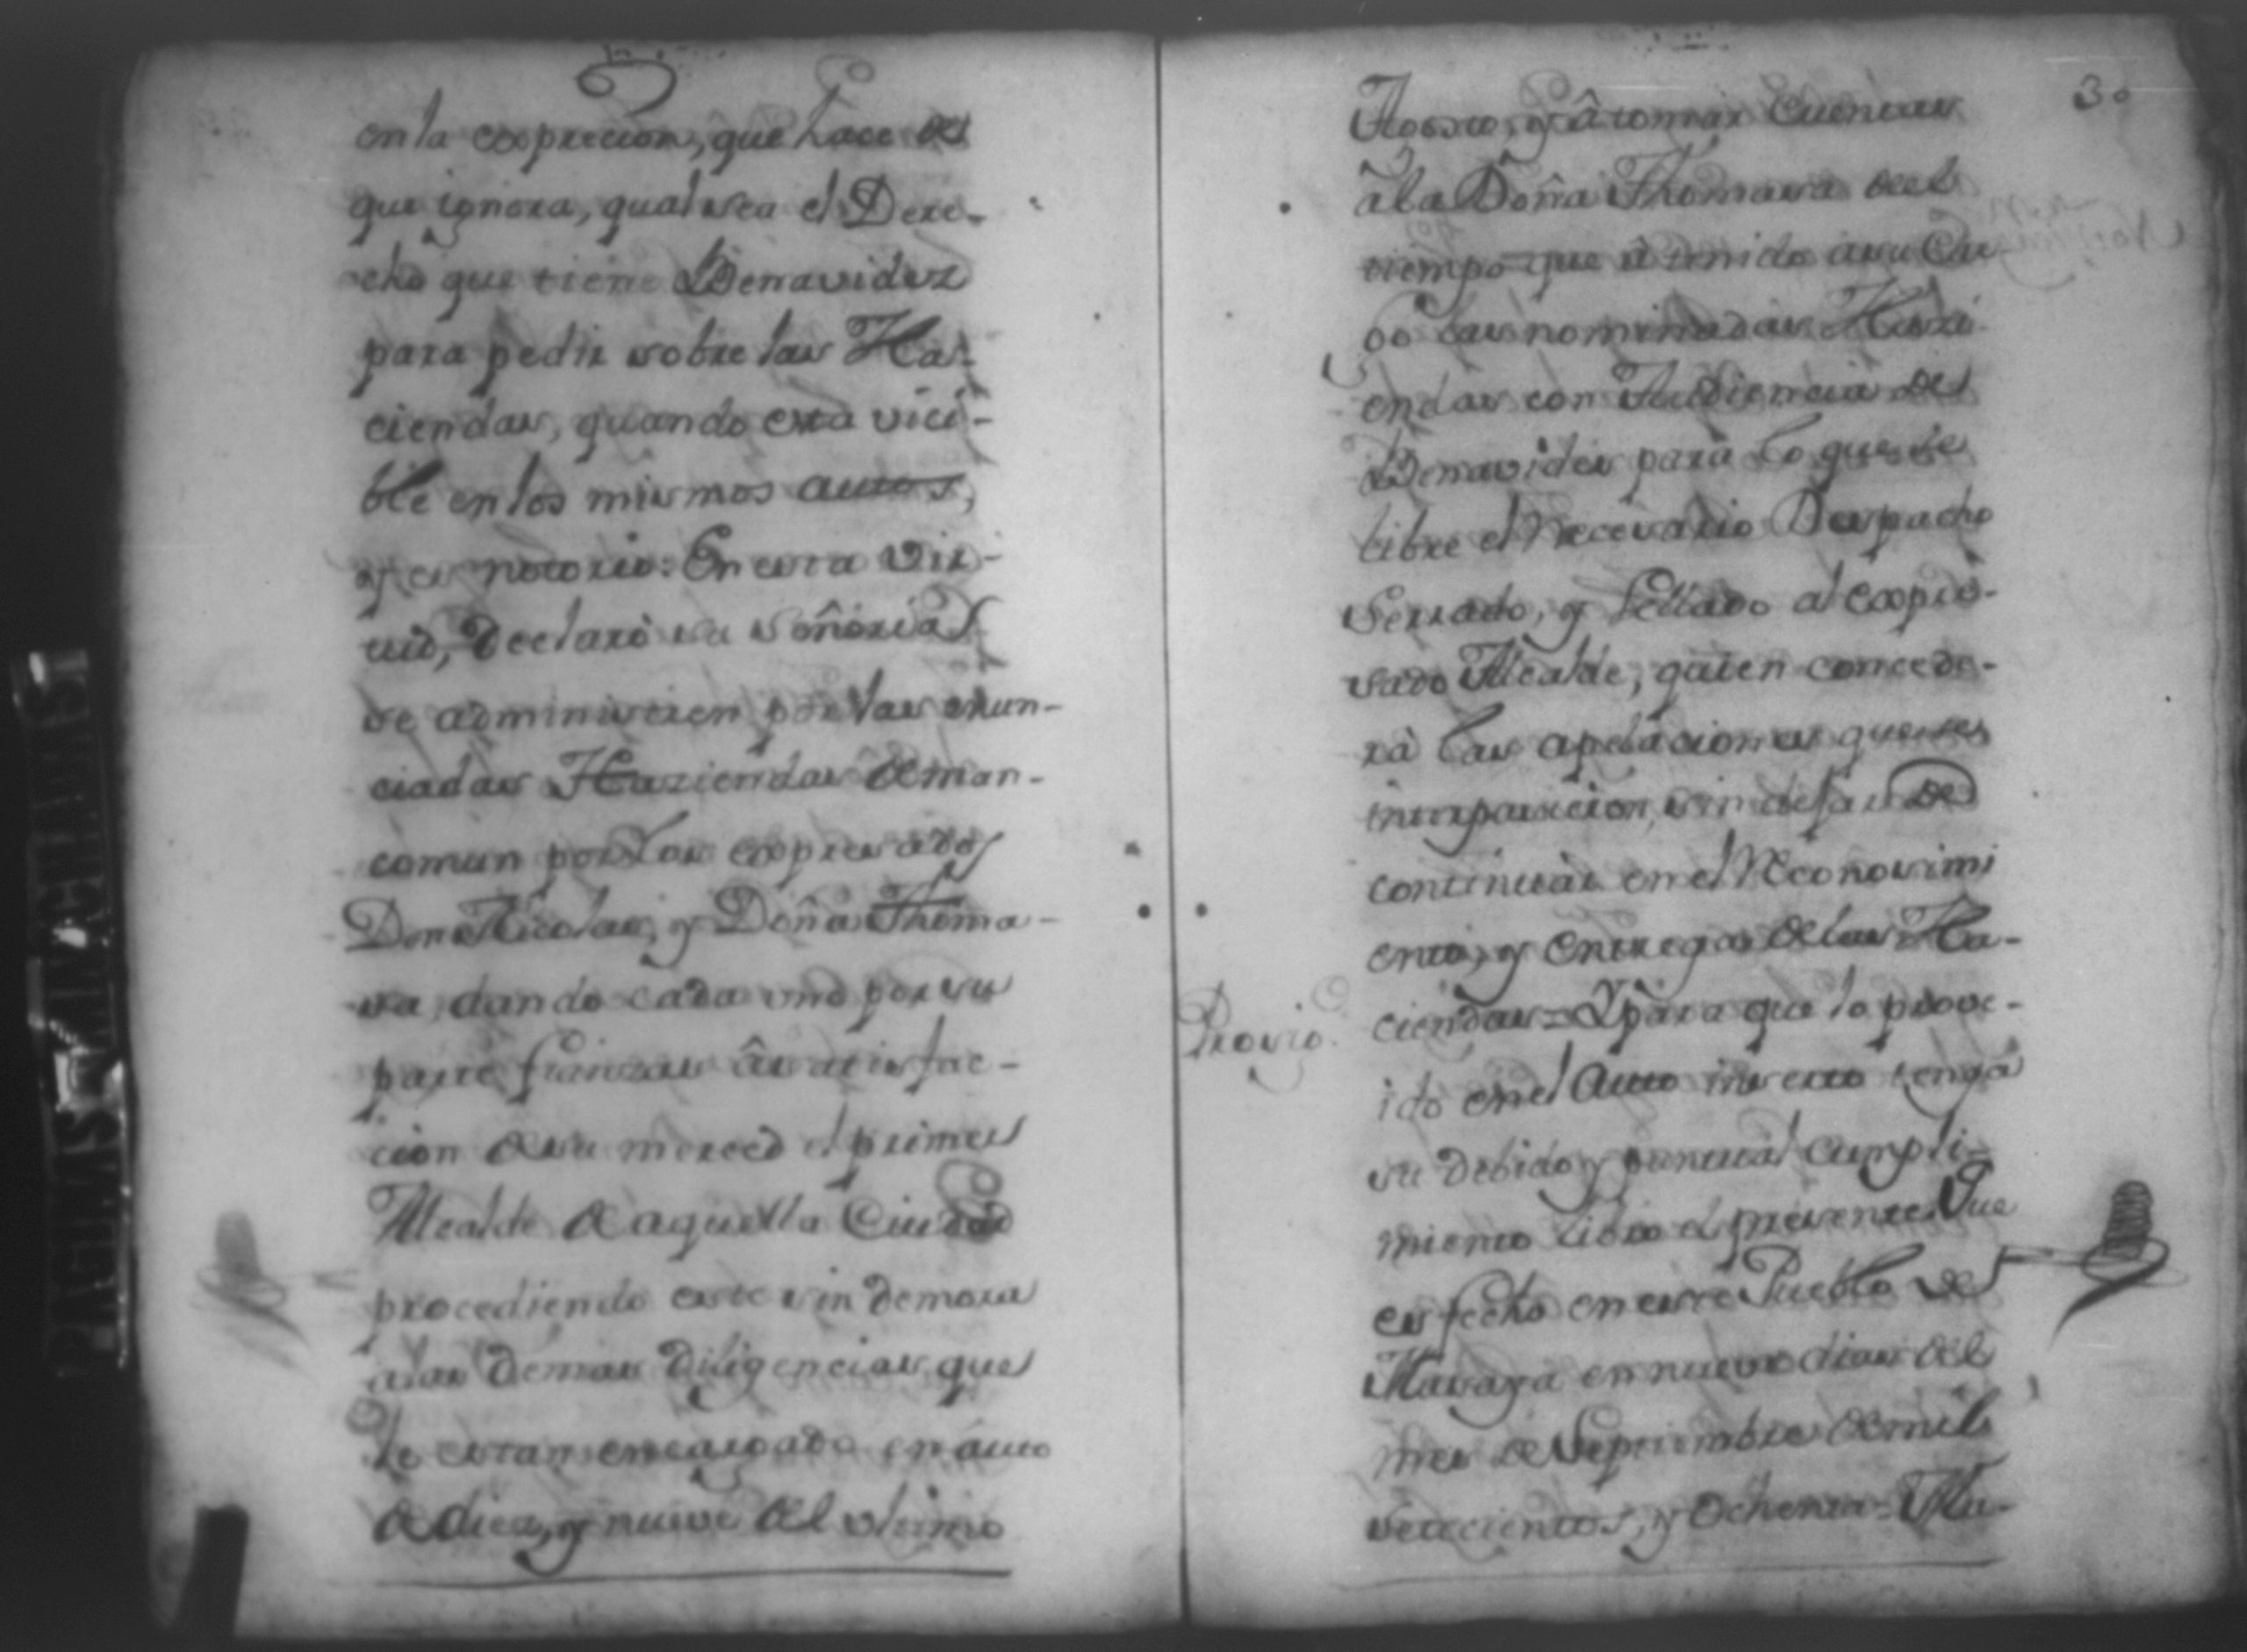 en la exprecion, que hace de
que ignora, qual sea el Dere-
cho que tiene Benavidez
para pedir sobre las Ha-
ciendas, quando esta vici-
ble en los mismos autos,
y es notorio: En esta vir-
tud, Declaró su señoria
se administren por las enun-
ciadas Haziendas de man-
comun por los expresados
Don Nicolas, y Doña Thoma-
sa, dando cada uno por su
parte fianzas â satisfac-
cion de su merced el primer
Alcalde de aquella Ciudad
procediendo este sin demora
a las demas diligencias, que
le estan encargada en auto
de diez, y nueve del ultimo
30
Agosto, y â tomar Cuentas
â la Doña Thomasa del
tiempo que â tenido a su Car-
go las nominadas Hazi-
endas con Audiencia del
Benavides para lo que se
libre el Necesario Despacho
Serrado, y Sellado al expre-
sado Alcalde, quien concede-
rà las apelaciones que se
interpusicion, sin dejar de
continuar en el Reconosimi
ento, y entrega de las Ha-
ciendas = Y para que lo prove-
Provio.
ido en el Auto inserto tenga
su debido y puntual cumpli-
miento libro el presente. Que
es fecho en este Pueblo de
Masaya en nueve dias del
mes de Septiembre de mil
setecientos, y Ochenta =